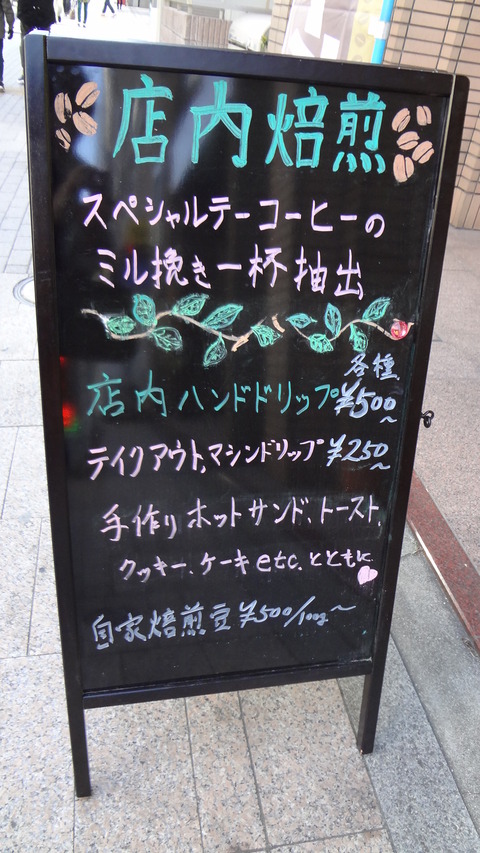 店内焙煎
スペシャルテーコーヒーの
ミル挽き一杯抽出
各種
店内ハンドドリップ ¥500~
テイクアウト,マシンドリップ ¥250~
手作りホットサンド、トースト,
クッキー、ケーキetc.とともに
自家焙煎豆 ¥500/100g~